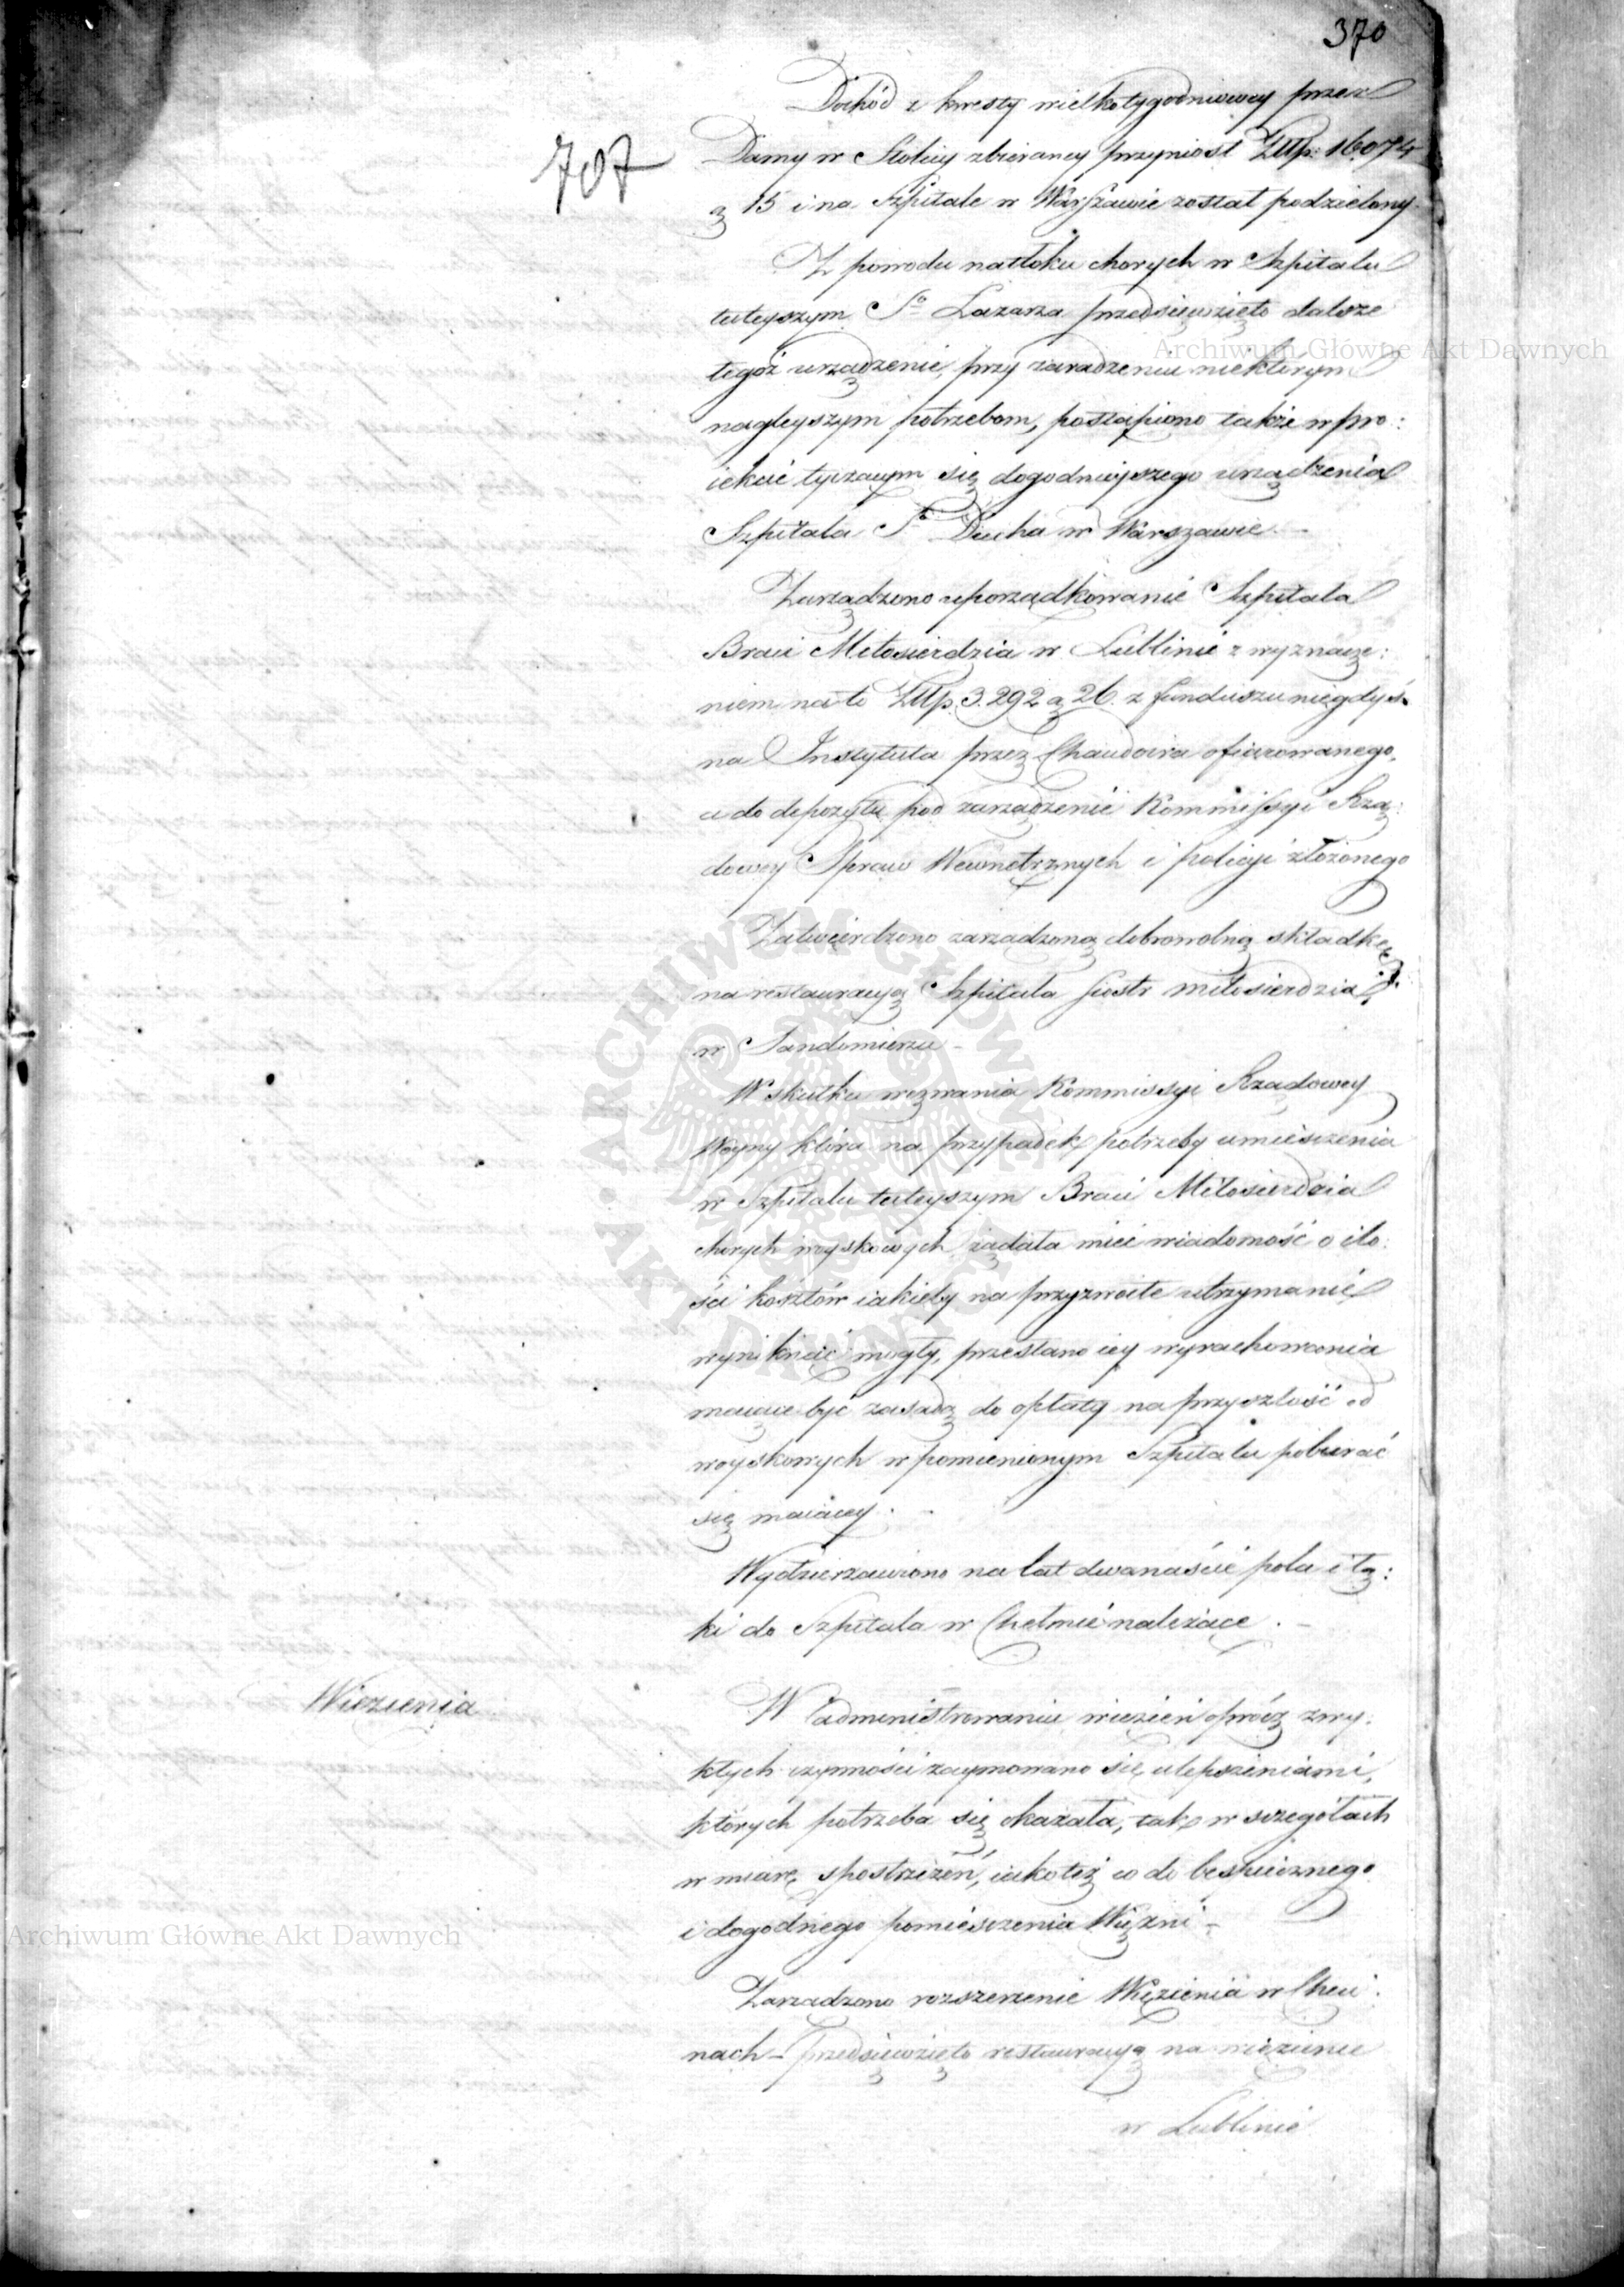 370
707
Dochód z kwesty wielkotygodniowey przez
Damy w Stolicy zbieraney przyniosł Złłp: 16074
g 15 i na Szpitale w Warszawie został podzielony.
Z powodu natłoku chorych w Szpitalu
tuteyszym Sgo Łazarza przedsięwzięto dalsze
tegoż urządzenie, przy zaradzeniu niektórym
nagleyszym potrzebom, postąpiono także w pro:
iekcie tyczącym się dogodnieyszego urządzenia
Szpitala Sgo Ducha w Warszawie. –
Zarządzono uporządkowanie Szpitala
Braci Miłosierdzia w Lublinie z wyznacze:
niem na to Złłp. 3.292 g 26. z funduszu niegdyś
na Instytuta przez Chaudoira ofiarowanego,
a do depozytu pod zarządzenie Kommissyi Rzą:
dowey Spraw Wewnętrznych i Policyi złożonego
Zatwierdzono zarządzoną dobrowolną składkę
na restauracyą Szpitala Siostr miłosierdzia
w Sandomierzu –
W skutku wezwania Kommissyi Rządowey
Woyny która na przypadek potrzeby umieszczenia
w Szpitalu tuteyszym Braci Miłosierdzia
chorych woyskowych żądała mieć wiadomość o ilo:
ści kosztów iakieby na przyzwoite utrzymanie
wyniknąć mogły, przesłano iey wyrachowania
maiące być zasadą do opłaty na przyszłość od
woyskowych w pomienionym Szpitalu pobierać
się maiącey. –
Wydzierzawiono na lat dwanaście pola i łą:
ki do Szpitala w Chełmie należące. –
Wiezienia
W administrowaniu wiezień oprócz zwy:
kłych czynności zaymowano się ulepszeniami,
których potrzeba się okazała, tak w szegółach
w miarę spostrzeżeń, iako też co do bespiecznego
i dogodnego pomieszczenia Więzni –
Zarządzono rozszerzenie Więzienia w Chęci:
nach – przedsięwzięto restauracyą na więzienie
w Lublinie
Archiwum Główne Akt Dawnych
Archiwum Główne Akt Dawnych
ARCHIWUM GŁÓWNE AKT DAWNYCH